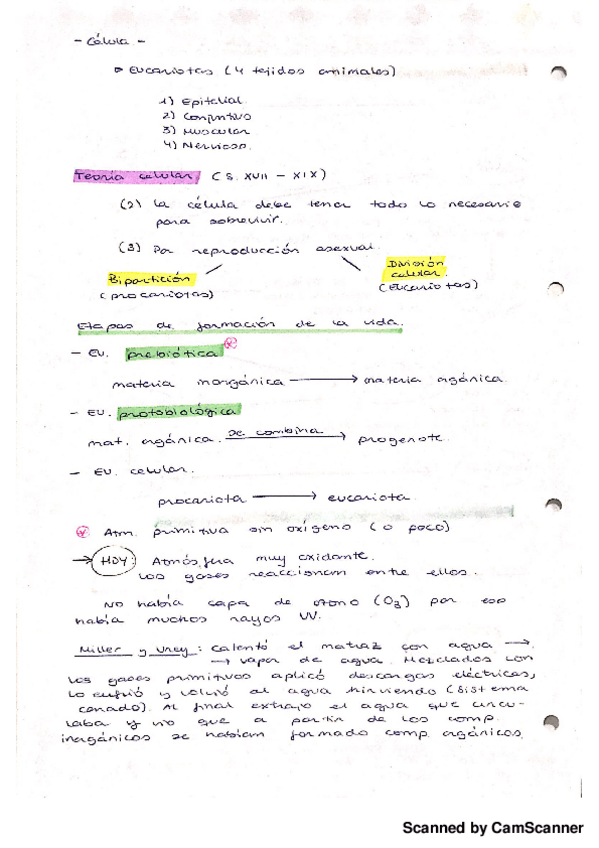 - Célula -
▹ Eucariotas (4 tejidos animales)
1) Epitelial.
2) Conjuntivo
3) Muscular
4) Nervioso.
Teoría celular (s. XVII - XIX)
(2) La célula debe tener todo lo necesario
para sobrevivir.
(3) Por reproducción asexual.
Bipartición
(procariotas)
División
celular.
(Eucariotas)
Etapas de formación de la vida.
- Ev. prebiótica *
materia inorgánica → materia orgánica.
- Ev. protobiológica
mat. orgánica. se combina → progenote.
- Ev. celular.
procariota → eucariota.
* Atm. primitiva sin oxígeno (o poco)
→ HOY: Atmósfera muy oxidante.
Los gases reaccionan entre ellos.
No había capa de ozono (O3) por eso
había muchos rayos UV.
Miller y Urey: calentó el matraz con agua →
→ vapor de agua. Mezclados con
los gases primitivos aplicó descargas eléctricas,
lo enfrió y volvió al agua hirviendo (sistema
cerrado). Al final extrajo el agua que circu-
laba y vio que a partir de los comp.
inorgánicos se habían formado comp. orgánicos.
Scanned by CamScanner